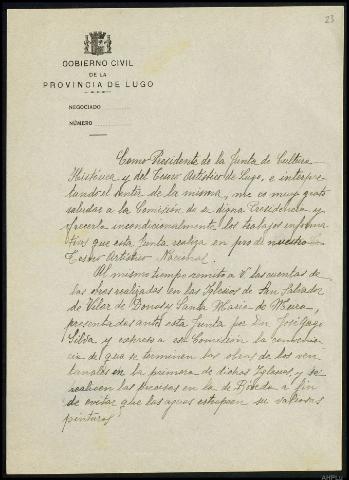 23
GOBIERNO CIVIL
DE LA
PROVINCIA DE LUGO
NEGOCIADO
NÚMERO
Como Presidente de la Junta de Cultura
Histórica y del Tesoro Artístico de Lugo, e interpre-
tando el sentir de la misma, me es muy grato
saludar a la Comisión de su digna Presidencia y
ofrecerla incondicionalmente los trabajos informa-
tivos que esta Junta realiza en pro de nuestro
Tesoro Artístico Nacional.
Al mismo tiempo remito a V. las cuentas de
las obras realizadas en las Iglesias de San Salvador
de Vilar de Donas y Santa María de Meira,
presentadas ante esta Junta por Don José Gago
Silva y expreso a esa Comisión la convenien-
cia de que se terminen las obras de los ven-
tanales en la primera de dichas Iglesias, y se
realicen las precisas en la de a fin
de evitar que las aguas estropeen su valiosas
pinturas
AHPLU